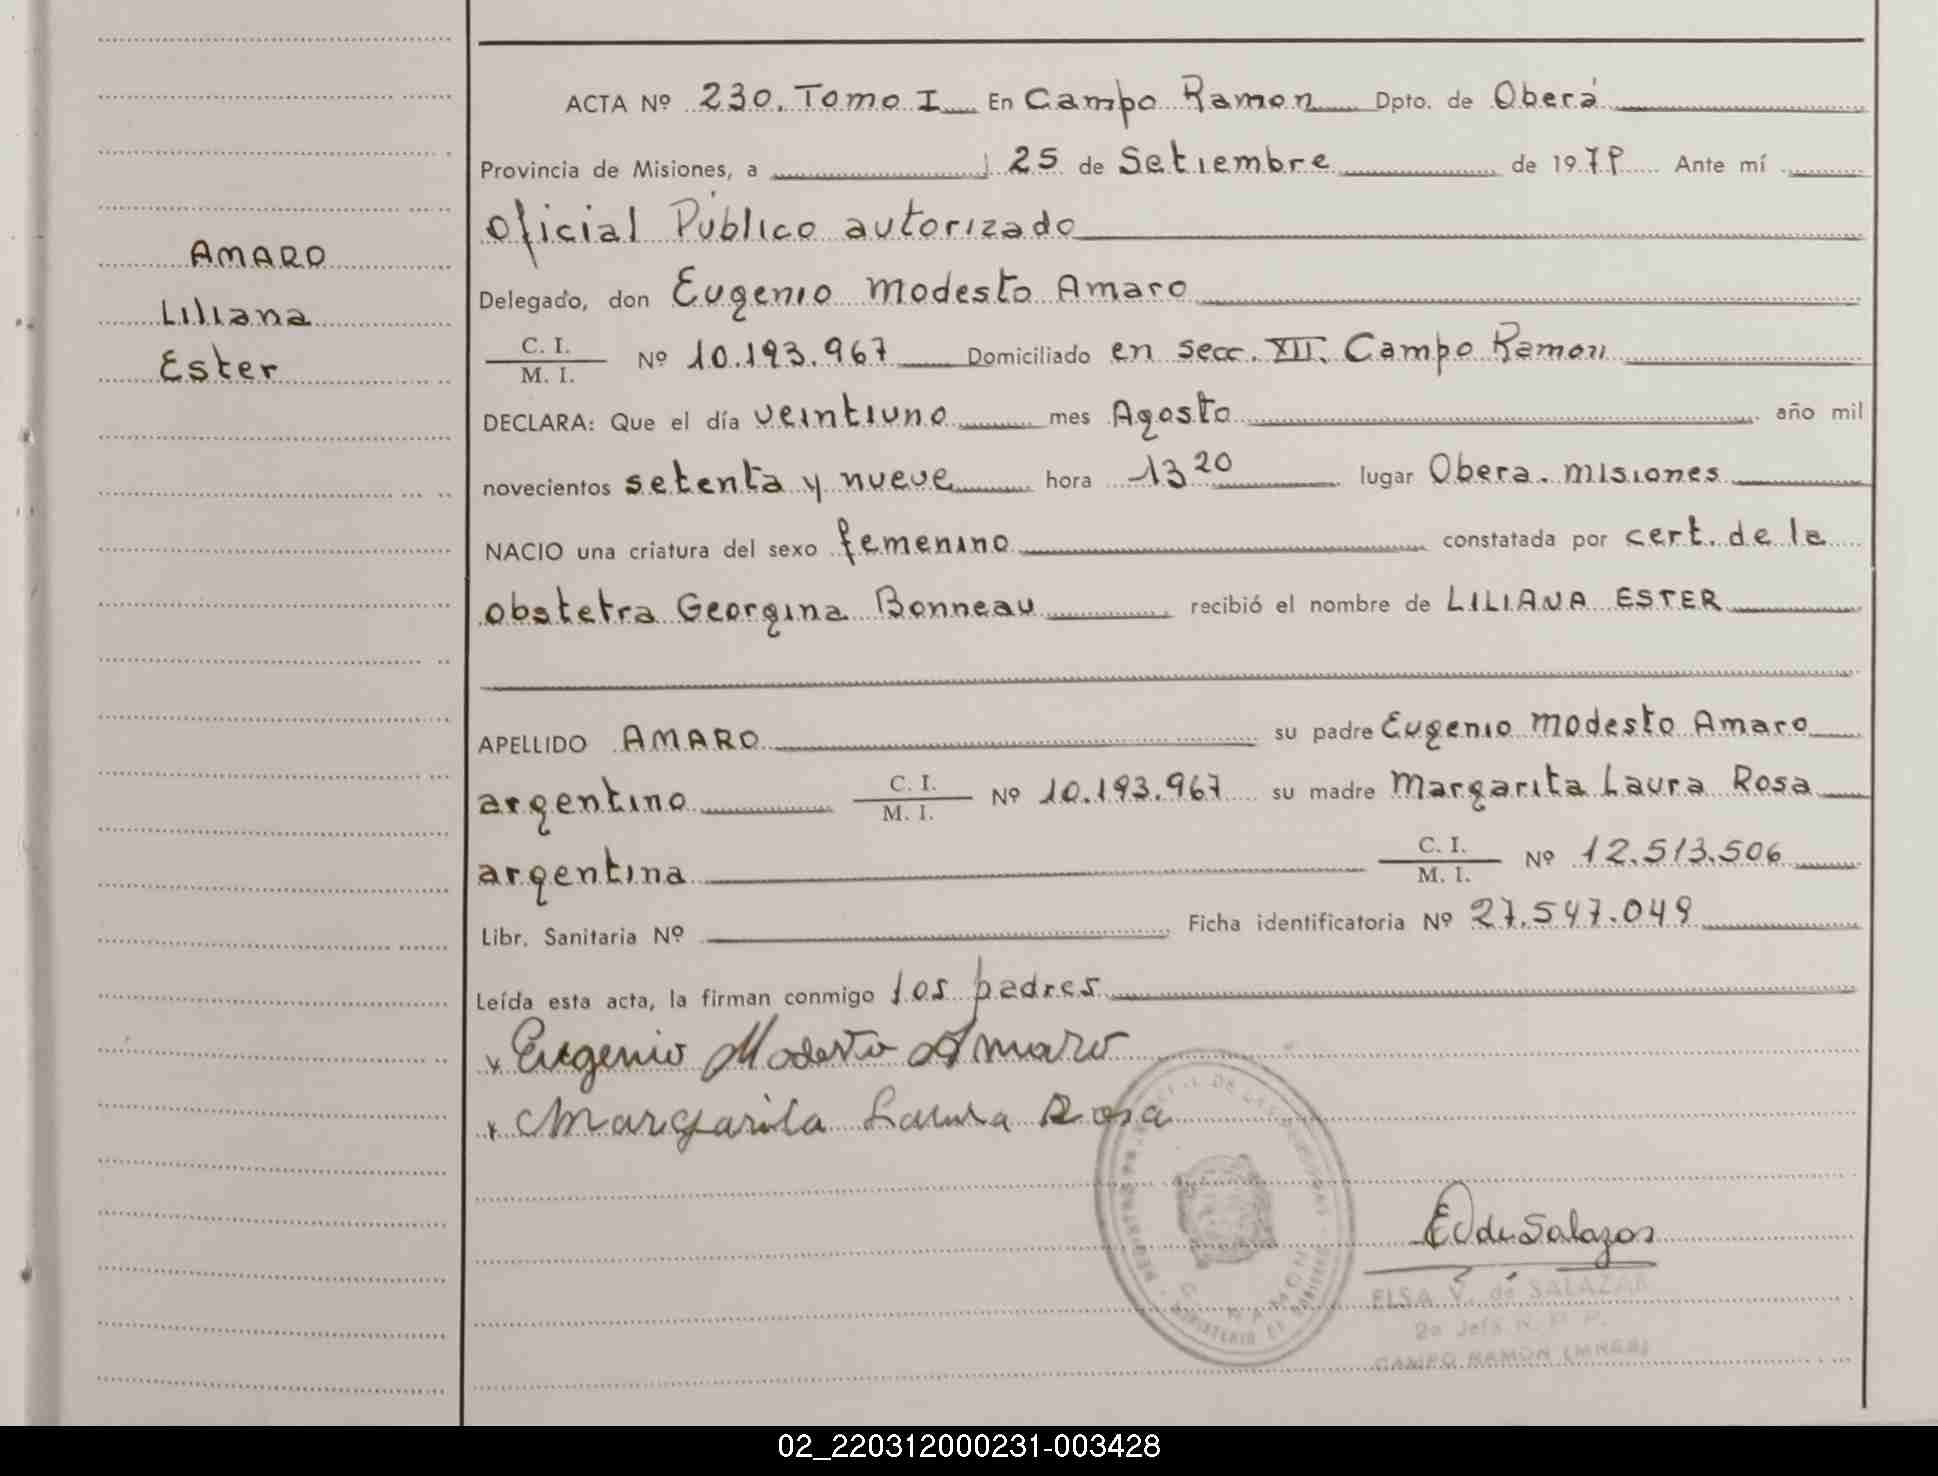 AMARO
Liliana
Ester
ACTA Nº 230. Tomo I En Campo Ramon Dpto. de Oberá
Provincia de Misiones, a 25 de Setiembre de 1979 Ante mí
Oficial Público autorizado
Delegado, don Eugenio Modesto Amaro
C. I.
M. I. Nº 10.193.967 Domiciliado en secc. XII. Campo Ramon
DECLARA: Que el día veintiuno mes Agosto año mil
novecientos setenta y nueve hora 13 20 lugar Obera. Misiones
NACIO una criatura del sexo femenino constatada por cert. de la
obstetra Georgina Bonneau recibió el nombre de LILIANA ESTER
APELLIDO AMARO su padre Eugenio Modesto Amaro
argentino C. I.
M. I. Nº 10.193.967 su madre Margarita Laura Rosa
argentina C. I.
M. I. Nº 12.513.506
Libr. Sanitaria Nº Ficha identificatoria Nº 27.547.049
Leída esta acta, la firman conmigo los padres
x Eugenio Modesto Amaro
x Margarita Laura Rosa
E V de Salazar
ELSA V. de SALAZAR
2a Jefa R. P. P.
CAMPO RAMON (MNES)
REGISTRO DE LAS PERSONAS
C. RAMON
MINISTERIO DE GOBIERNO
02_220312000231-003428